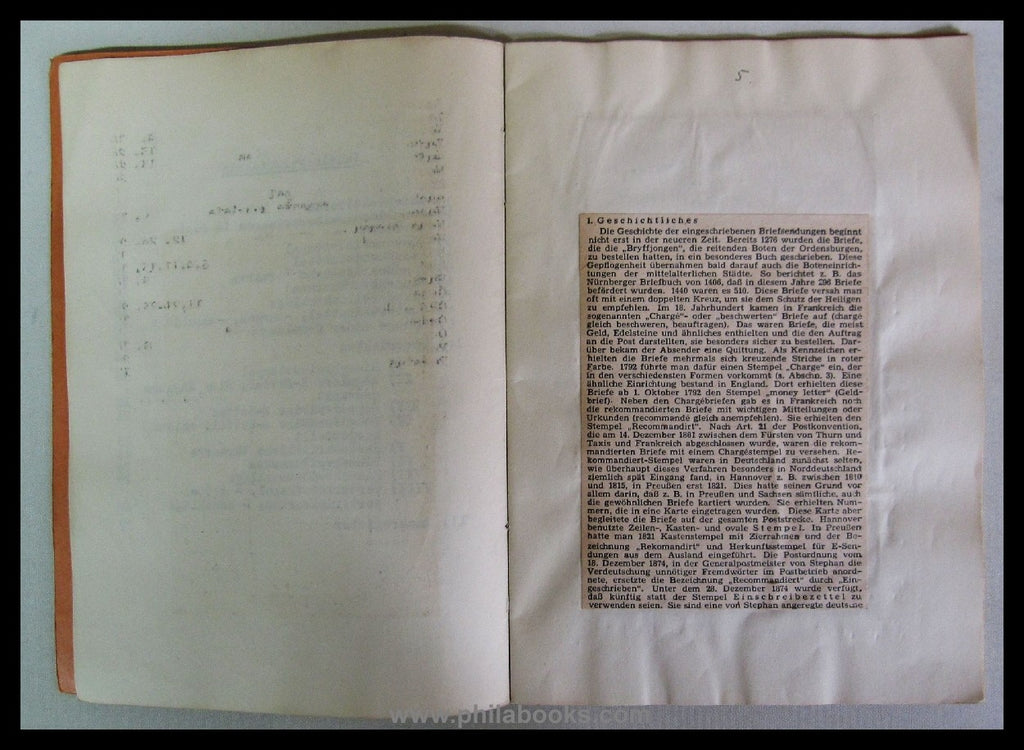 5.
1. Geschichtliches
Die Geschichte der eingeschriebenen Briefsendungen beginnt
nicht erst in der neueren Zeit. Bereits 1276 wurden die Briefe,
die die „Bryffjongen", die reitenden Boten der Ordensburgen,
zu bestellen hatten, in ein besonderes Buch geschrieben. Diese
Gepflogenheit übernahmen bald darauf auch die Boteneinrich-
tungen der mittelalterlichen Städte. So berichtet z. B. das
Nürnberger Briefbuch von 1406, daß in diesem Jahre 296 Briefe
befördert wurden. 1440 waren es 510. Diese Briefe versah man
oft mit einem doppelten Kreuz, um sie dem Schutz der Heiligen
zu empfehlen. Im 18. Jahrhundert kamen in Frankreich die
sogenannten „Chargé"- oder „beschwerten" Briefe auf (chargé
gleich beschweren, beauftragen). Das waren Briefe, die meist
Geld, Edelsteine und ähnliches enthielten und die den Auftrag
an die Post darstellten, sie besonders sicher zu bestellen. Dar-
über bekam der Absender eine Quittung. Als Kennzeichen er-
hielten die Briefe mehrmals sich kreuzende Striche in roter
Farbe. 1792 führte man dafür einen Stempel „Charge" ein, der
in den verschiedensten Formen vorkommt (s. Abschn. 3). Eine
ähnliche Einrichtung bestand in England. Dort erhielten diese
Briefe ab 1. Oktober 1792 den Stempel „money letter" (Geld-
brief). Neben den Chargébriefen gab es in Frankreich noch
die rekommandierten Briefe mit wichtigen Mitteilungen oder
Urkunden (recommandé gleich anempfehlen). Sie erhielten den
Stempel „Recommandirt". Nach Art. 21 der Postkonvention,
die am 14. Dezember 1801 zwischen dem Fürsten von Thurn und
Taxis und Frankreich abgeschlossen wurde, waren die rekom-
mandierten Briefe mit einem Chargéstempel zu versehen. Re-
kommandiert-Stempel waren in Deutschland zunächst selten,
wie überhaupt dieses Verfahren besonders in Norddeutschland
ziemlich spät Eingang fand, in Hannover z. B. zwischen 1810
und 1815, in Preußen erst 1821. Dies hatte seinen Grund vor
allem darin, daß z. B. in Preußen und Sachsen sämtliche, auch
die gewöhnlichen Briefe kartiert wurden. Sie erhielten Num-
mern, die in eine Karte eingetragen wurden. Diese Karte aber
begleitete die Briefe auf der gesamten Poststrecke. Hannover
benutzte Zeilen-, Kasten- und ovale Stempel. In Preußen
hatte man 1821 Kastenstempel mit Zierrahmen und der Be-
zeichnung „Rekomandirt" und Herkunftsstempel für E-Sen-
dungen aus dem Ausland eingeführt. Die Postordnung vom
18. Dezember 1874, in der Generalpostmeister von Stephan die
Verdeutschung unnötiger Fremdwörter im Postbetrieb anord-
nete, ersetzte die Bezeichnung „Recommandiert" durch „Ein-
geschrieben". Unter dem 28. Dezember 1874 wurde verfügt,
daß künftig statt der Stempel Einschreibezettel zu
verwenden seien. Sie sind eine von Stephan angeregte deutsche
www.philabooks.com